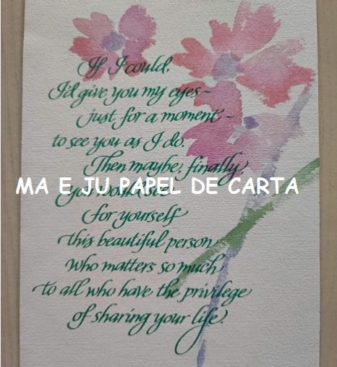 If I could,
I'd give you my eyes~
just for a moment~
to see you as I do.
Then maybe, finally,
MA E JU PAPEL DE CARTA
for yourself
this beautiful person
who matters so much
to all who have the privilege
of sharing your life.